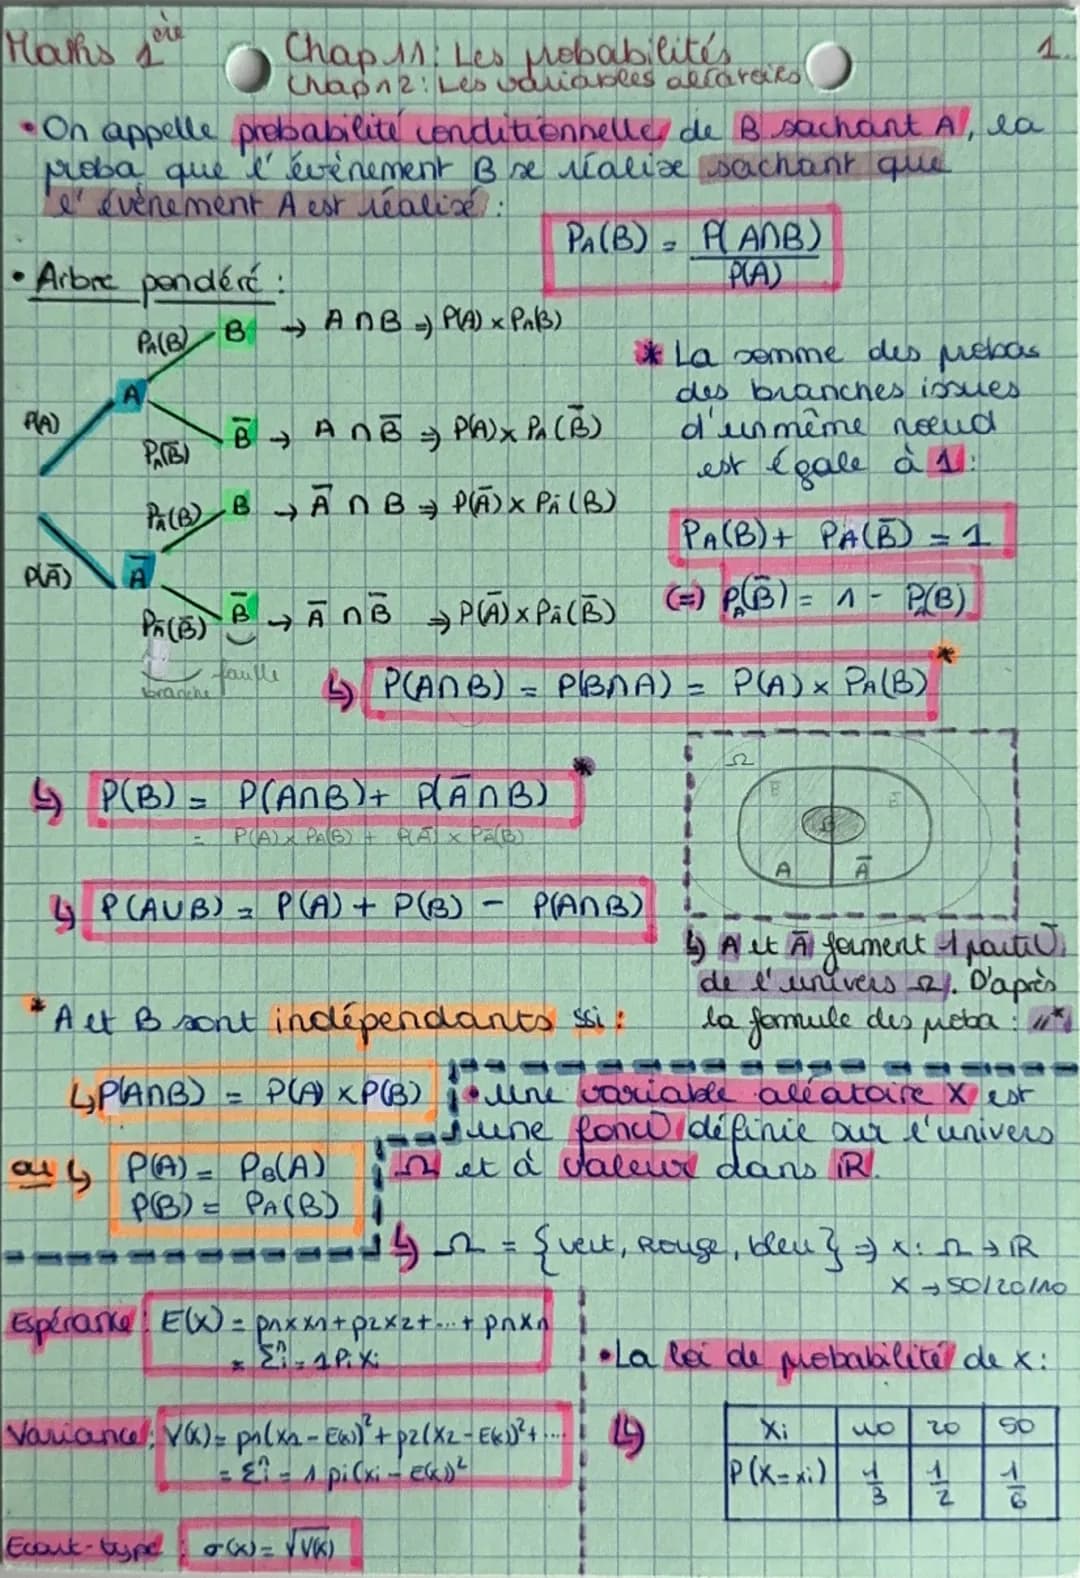 Maths 1ère
Chap 11: Les probabilités
1.
Chap 12: Les variables aléatoires
• On appelle probabilité conditionnelle, de B sachant A, la
proba que l'évènement B se réalise sachant que
l'évènement A est réalisé :
PA(B) = P(A∩B)/P(A)
• Arbre pondéré :
PA(B) B → A ∩ B ⇒ P(A) x PA(B)
A
P(A)
PA(B̅) B̅ → A ∩ B̅ ⇒ P(A) x PA(B̅)
PA̅(B) B → A̅ ∩ B ⇒ P(A̅) x PA̅(B)
P(A̅) A̅
PA̅(B̅) B̅ → A̅ ∩ B̅ ⇒ P(A̅) x PA̅(B̅)
branche feuille
* La somme des probas
des branches issues
d'un même noeud
est égale à 1 :
PA(B) + PA(B̅) = 1
(=) PA(B̅) = 1 - PA(B)
↳ P(A∩B) = P(B∩A) = P(A) x PA(B) *
↳ P(B) = P(A∩B) + P(A̅∩B) *
= P(A) x PA(B) + P(A̅) x PA̅(B)
↳ P(A∪B) = P(A) + P(B) - P(A∩B)
Ω
B̅ B̅
B
A A̅
↳ A et A̅ forment 1 partit°
de l'univers Ω. D'après
la formule des proba : "*
* A et B sont indépendants ssi :
↳ P(A∩B) = P(A) x P(B)
ou ↳ P(A) = PB(A)
P(B) = PA(B)
• Une variable aléatoire X est
une fonct° définie sur l'univers
Ω et à valeur dans ℝ.
↳ Ω = {vert, Rouge, bleu} ⇒ x : Ω → ℝ
X → 50/20/10
Espérance : E(X) = p1xx1 + p2xx2 + ... + pnxn
= Σn i=1 Pi Xi
Variance : V(X) = p1(x1 - E(x))² + p2(x2 - E(x))² + ...
= Σn i = 1 pi(xi - E(x))²
Ecart-type : σ(x) = √V(X)
• La loi de probabilité de x :
↳ Xi 10 20 50
P(X=xi) 1/3 1/2 1/6